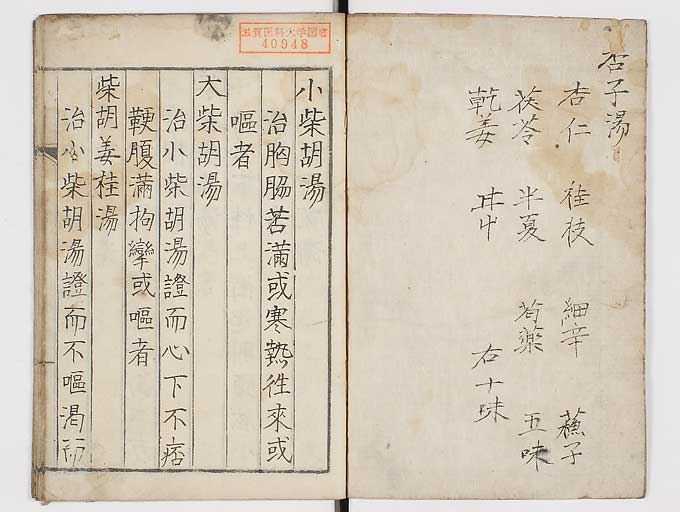 杏子湯
杏仁 桂枝 細辛 蘓子
茯苓 半夏 芍藥 五味
乾姜 右十味
滋賀医科大学図書
40948
小柴胡湯
治胸脇苦滿或寒熱徃來或
嘔者
大柴胡湯
治小柴胡湯證而心下不痞
鞕腹滿拘攣或嘔者
柴胡姜桂湯
治小柴胡湯證而不嘔渴而